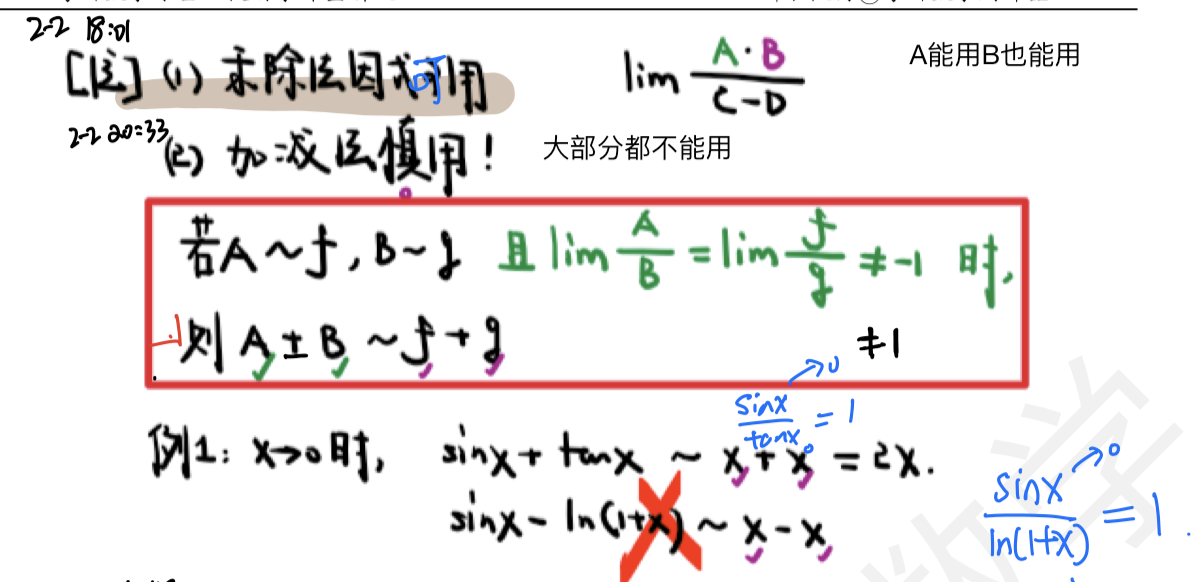 2-2 18:01
[注] (1) 乘除法因式可用
lim A·B / C-D
A能用B也能用
2-2 20:33
(2) 加减法慎用!
大部分都不能用
若A~f, B~g 且lim A/B = lim f/g ≠ -1 时,
则 A ± B ~ f + g
≠1
sinx/tanx = 1 →0
例1: x→0时, sinx + tanx ~ x + x = 2x.
sinx - ln(1+x) ~ x - x
sinx/ln(1+x) = 1 →0
数学